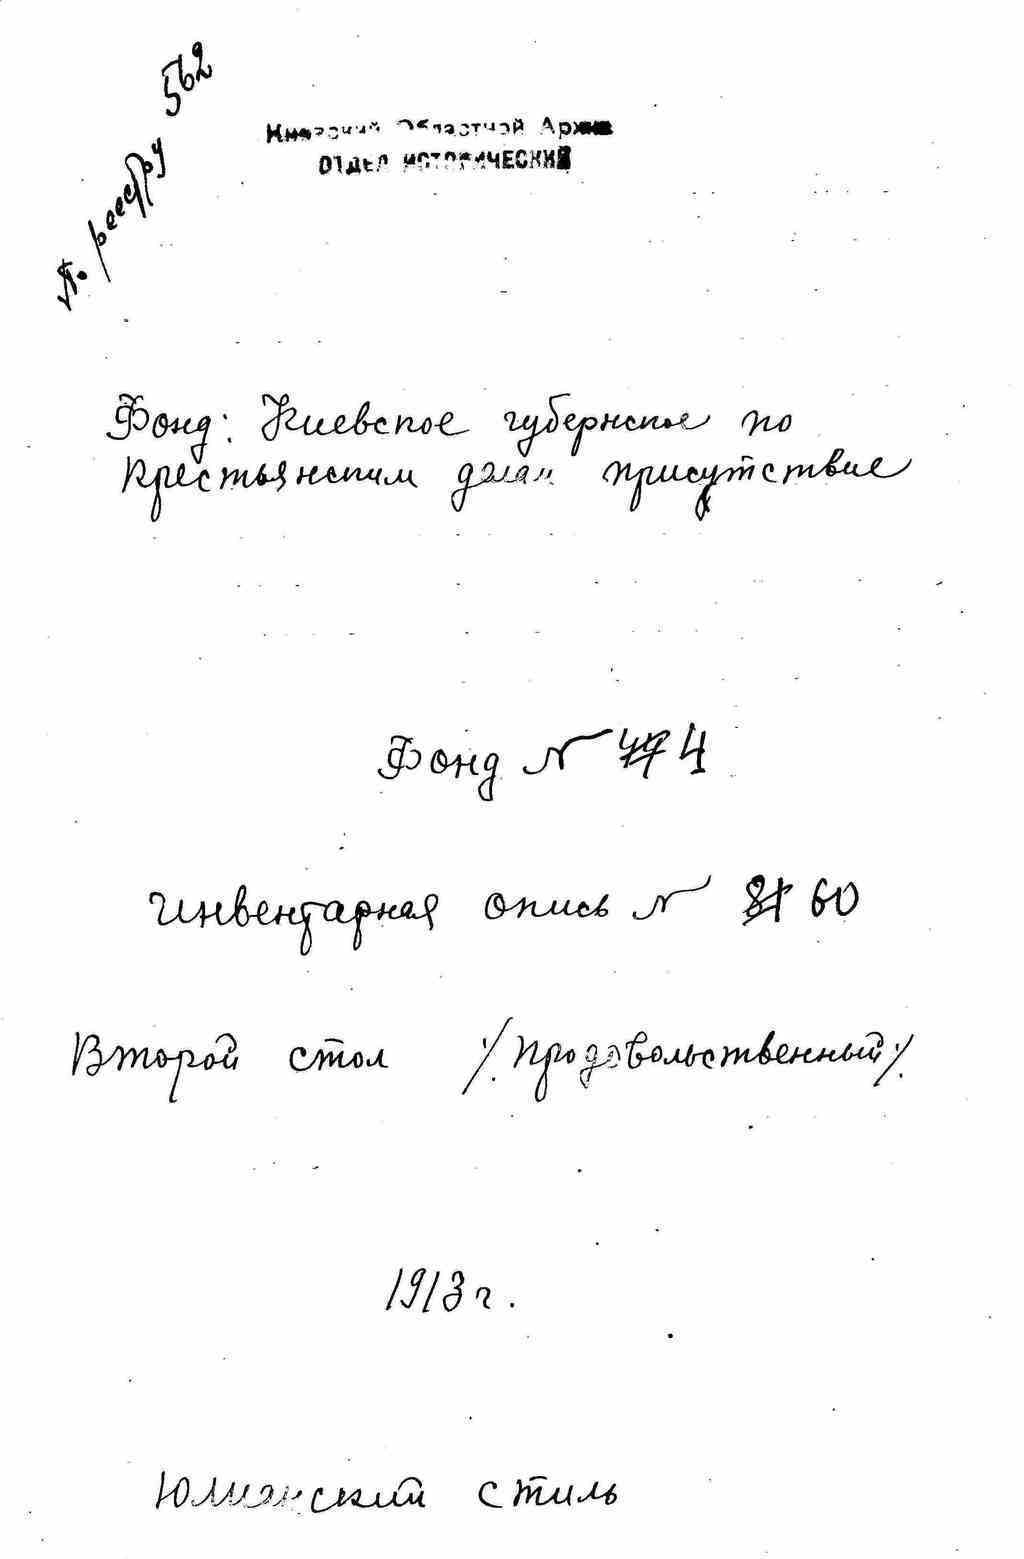 по реестру 562
Киевский Областной Архив
ОТДЕЛ ИСТОРИЧЕСКИЙ
Фонд: Киевское губернское по
Крестьянским делам присутствие
Фонд N 4
Инвентарная опись N 60
Второй стол /Продовольственный/.
1913 г.
Юлианский стиль